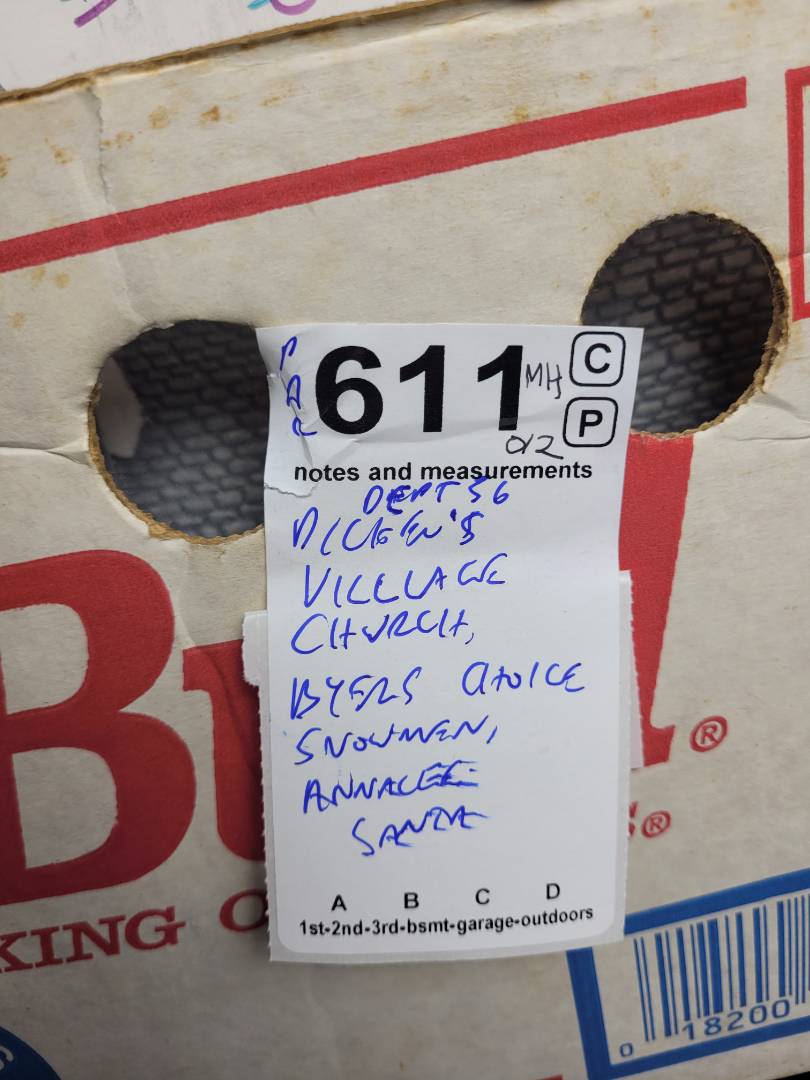 PAR
611
MH
C
P
012
notes and measurements
DEPT 56
DICKEN'S
VILLAGE
CHURCH,
BYERS CHOICE
SNOWMEN,
ANNALEE
SANTA
A B C D
1st-2nd-3rd-bsmt-garage-outdoors
®
®
KING
0 18200